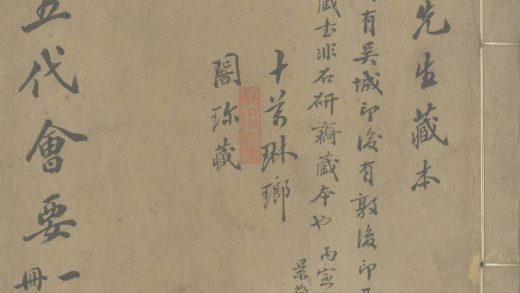 先生藏本
有吴城印後有敦復印
藏書非石研齋藏本也 丙寅
景
十萬琳瑯
閣珎藏
五代會要
一
冊